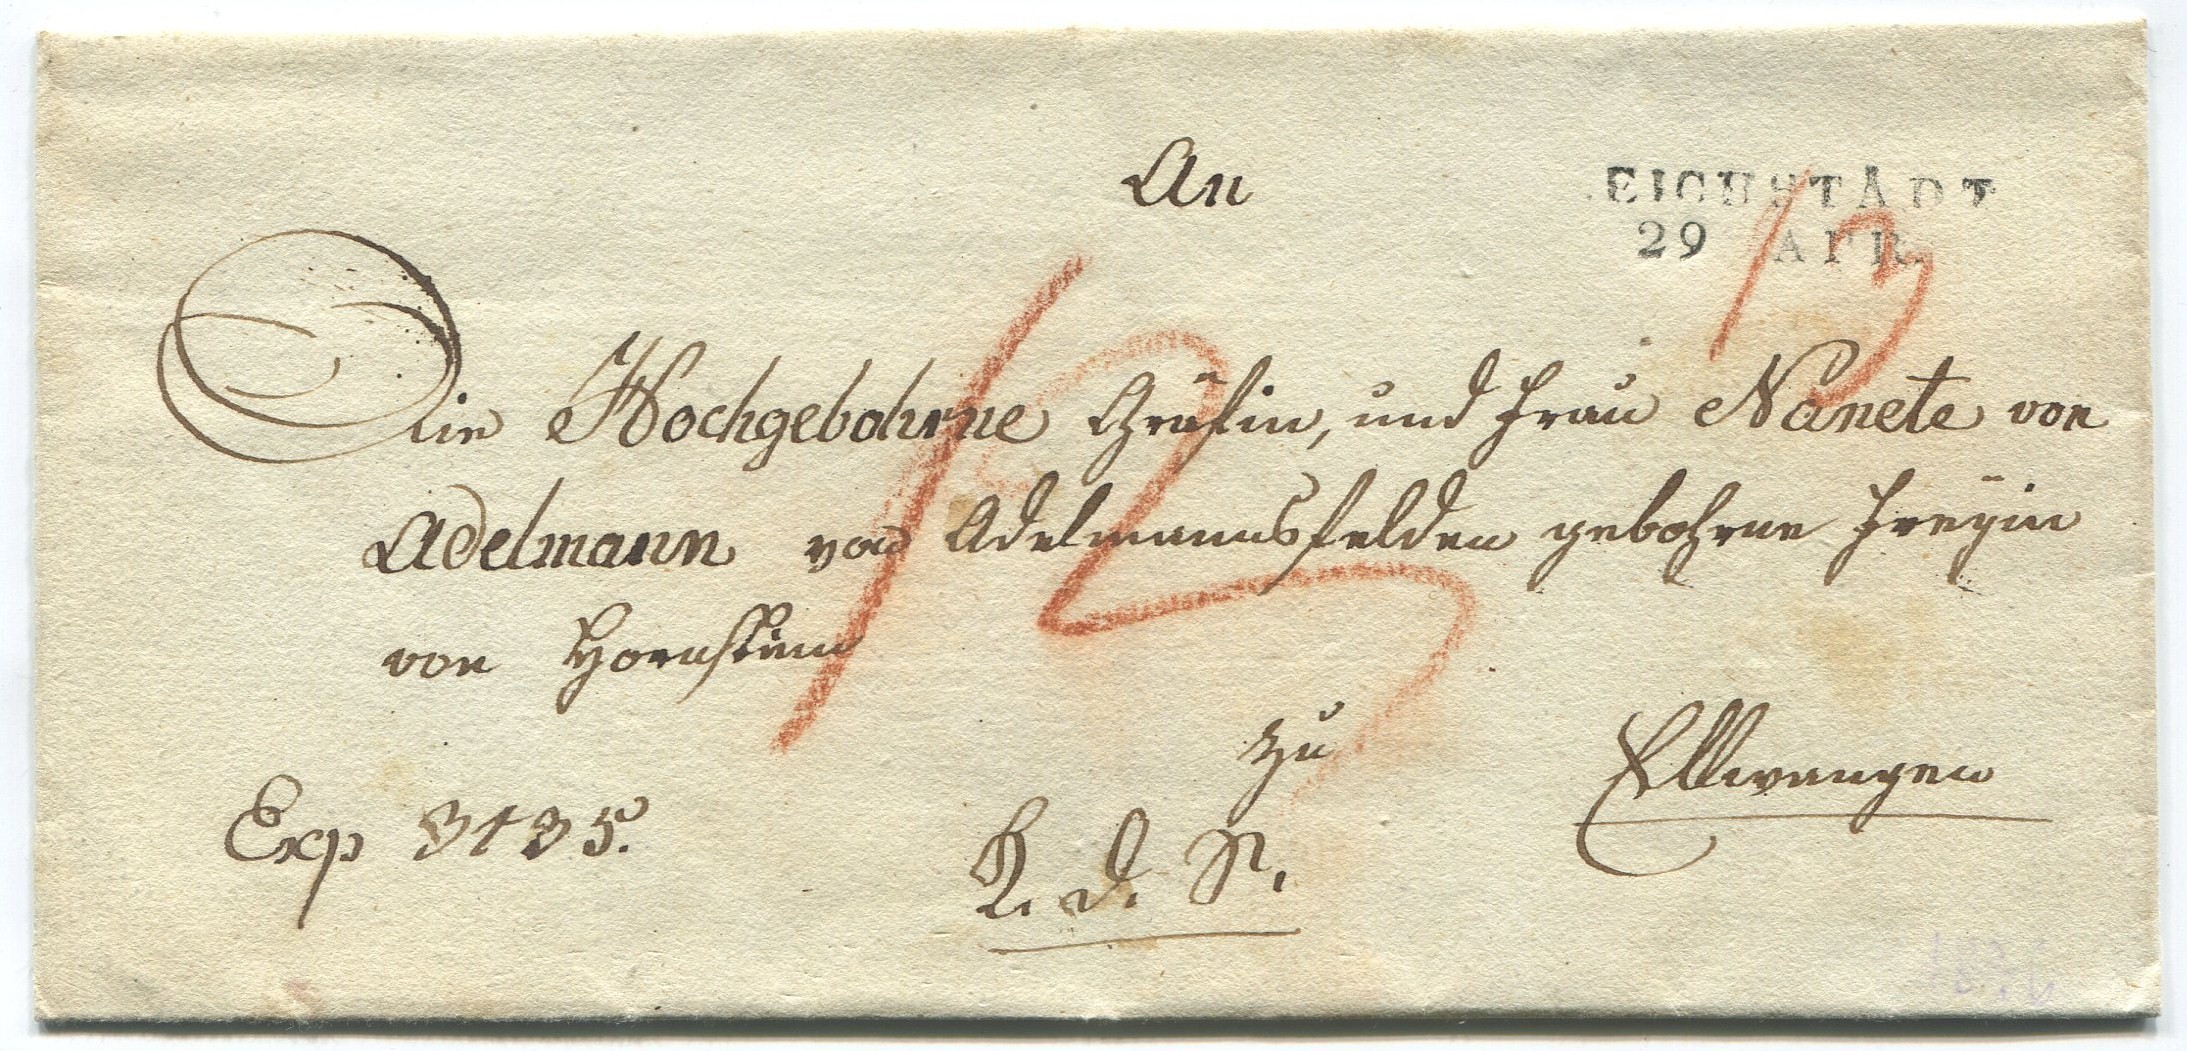 An
EICHSTÄDT
29 APR.
13
12
Die Hochgebohrne Gräfin, und Frau Nanete von
Adelmann von Adelmannsfelden gebohrne Freÿin
von Hornstein
zu
Ellwangen
Exp 3135.
R. d. N.